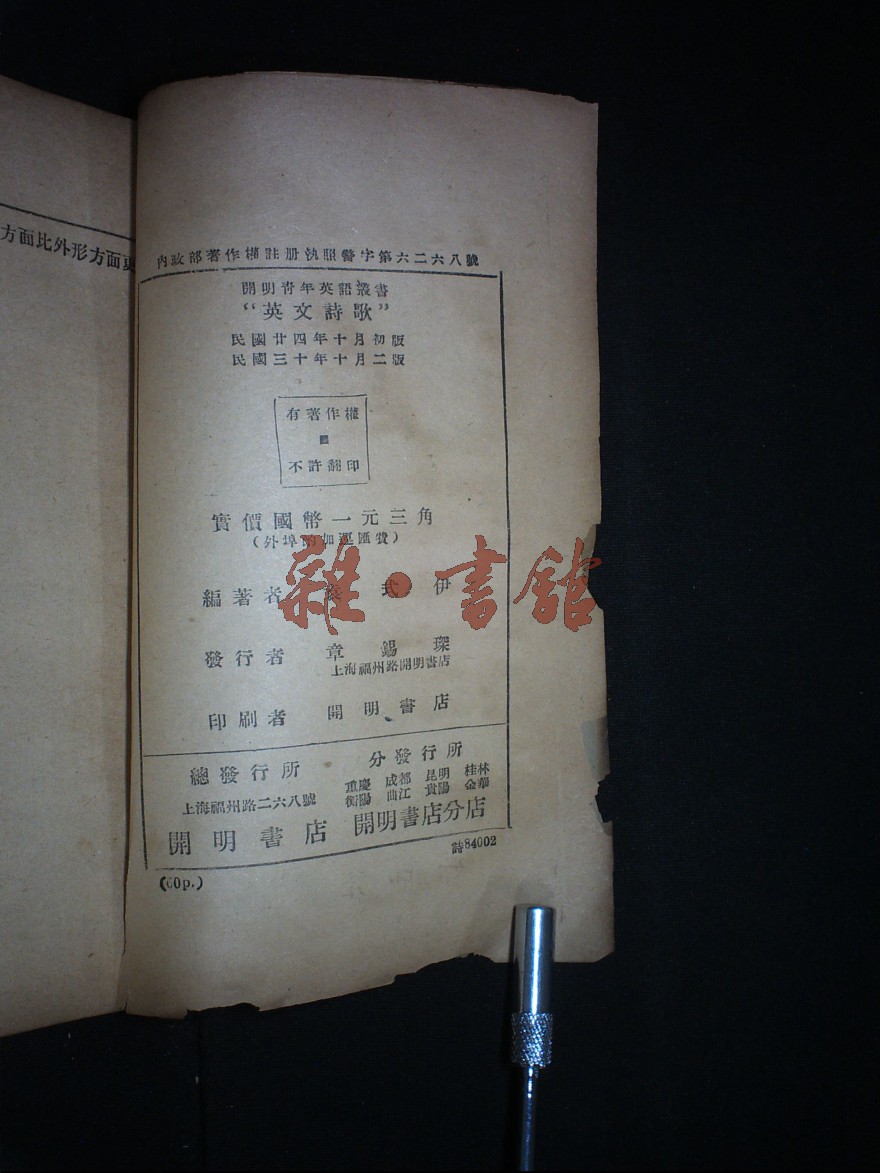 方面比外形方面更
內政部著作權註册執照警字第六二六八號
開明靑年英語叢書
“英文詩歌”
民國廿四年十月初版
民國三十年十月二版
有著作權
不許翻印
實價國幣一元三角
(外埠酌加運匯費)
編著者 式 伊
雜·書舘
發行者 章錫琛
上海福州路開明書店
印刷者 開明書店
總發行所
上海福州路二六八號
開明書店
分發行所
重慶 成都 昆明 桂林
衡陽 曲江 貴陽 金華
開明書店分店
詩84002
(60p.)